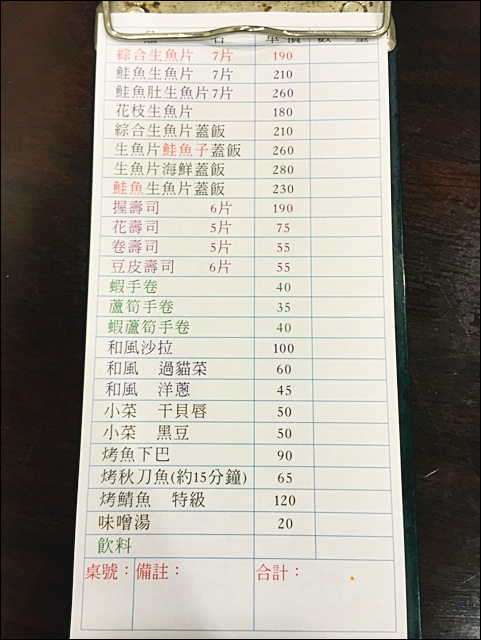 品 名 單價 數 量
綜合生魚片 7片 190
鮭魚生魚片 7片 210
鮭魚肚生魚片7片 260
花枝生魚片 180
綜合生魚片蓋飯 210
生魚片鮭魚子蓋飯 260
生魚片海鮮蓋飯 280
鮭魚生魚片蓋飯 230
握壽司 6片 190
花壽司 5片 75
卷壽司 5片 55
豆皮壽司 6片 55
蝦手卷 40
蘆筍手卷 35
蝦蘆筍手卷 40
和風沙拉 100
和風 過貓菜 60
和風 洋蔥 45
小菜 干貝唇 50
小菜 黑豆 50
烤魚下巴 90
烤秋刀魚(約15分鐘) 65
烤鯖魚 特級 120
味噌湯 20
飲料
桌號：備註： 合計：